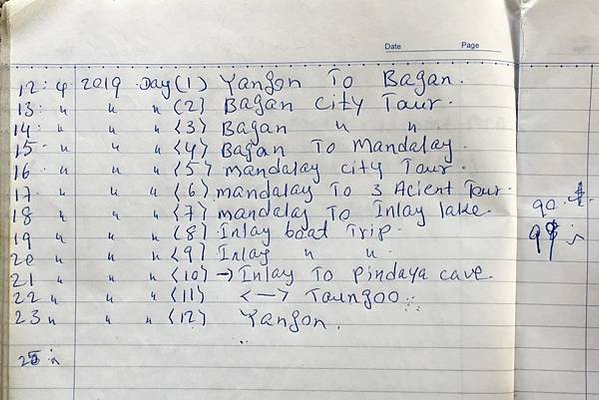 Date Page
12: 4 2019 Day (1) Yangon To Bagan.
13: " " " (2) Bagan city Tour.
14: " " " (3) Bagan " "
15: " " " (4) Bagan To Mandalay.
16. " " " (5) mandalay city Tour.
17. " " " (6) mandalay To 3 Acient Tour.
18 " " " (7) mandalay To Inlay lake. 90.$
19 " " " (8) Inlay boat Trip.
20 " " " (9) Inlay " "
21 " " " (10) → Inlay To Pindaya cave.
22 " " " (11) <—> Taungoo
23 " " " (12) Yangon.